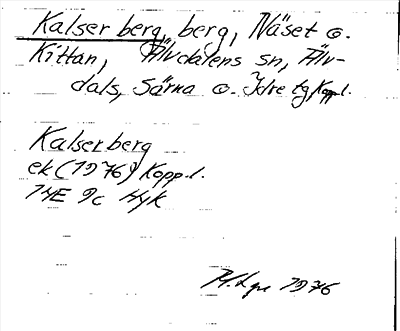 Kalserberg, berg, Näset o.
Kittan, Älvdalens sn, Älv-
dals, Särna o. Idre tg Kopp.l.
Kalserberg
ek (1976) Kopp.l.
14E 9c Hyk
1976